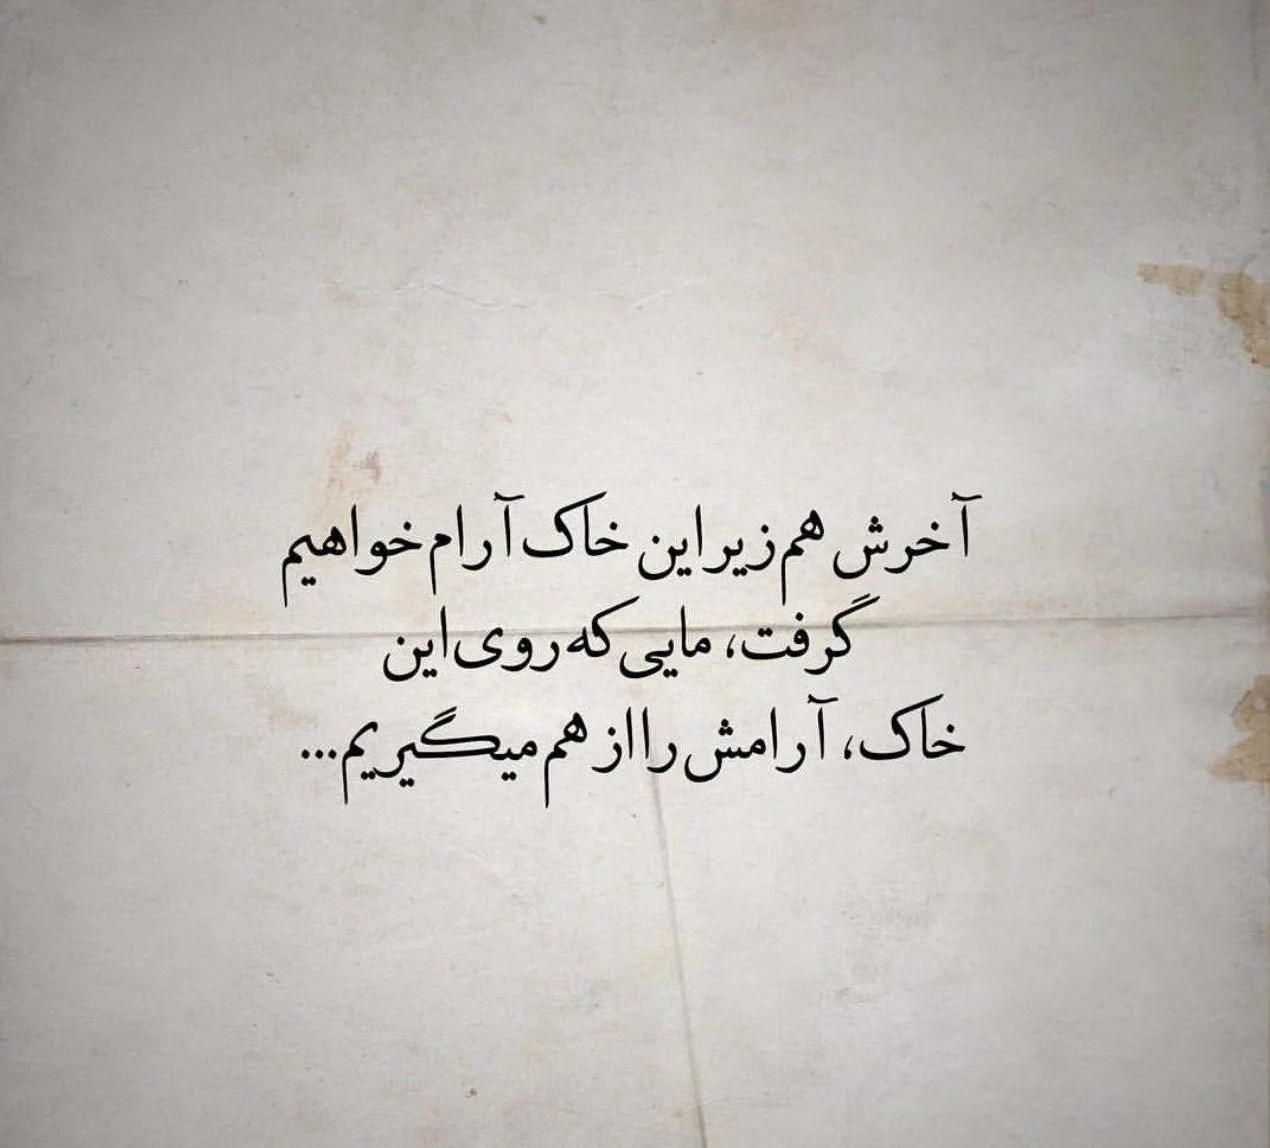 آخرش هم زیر این خاک آرام خواهیم
گرفت، مایی که روی این
خاک، آرامش را از هم میگیریم...